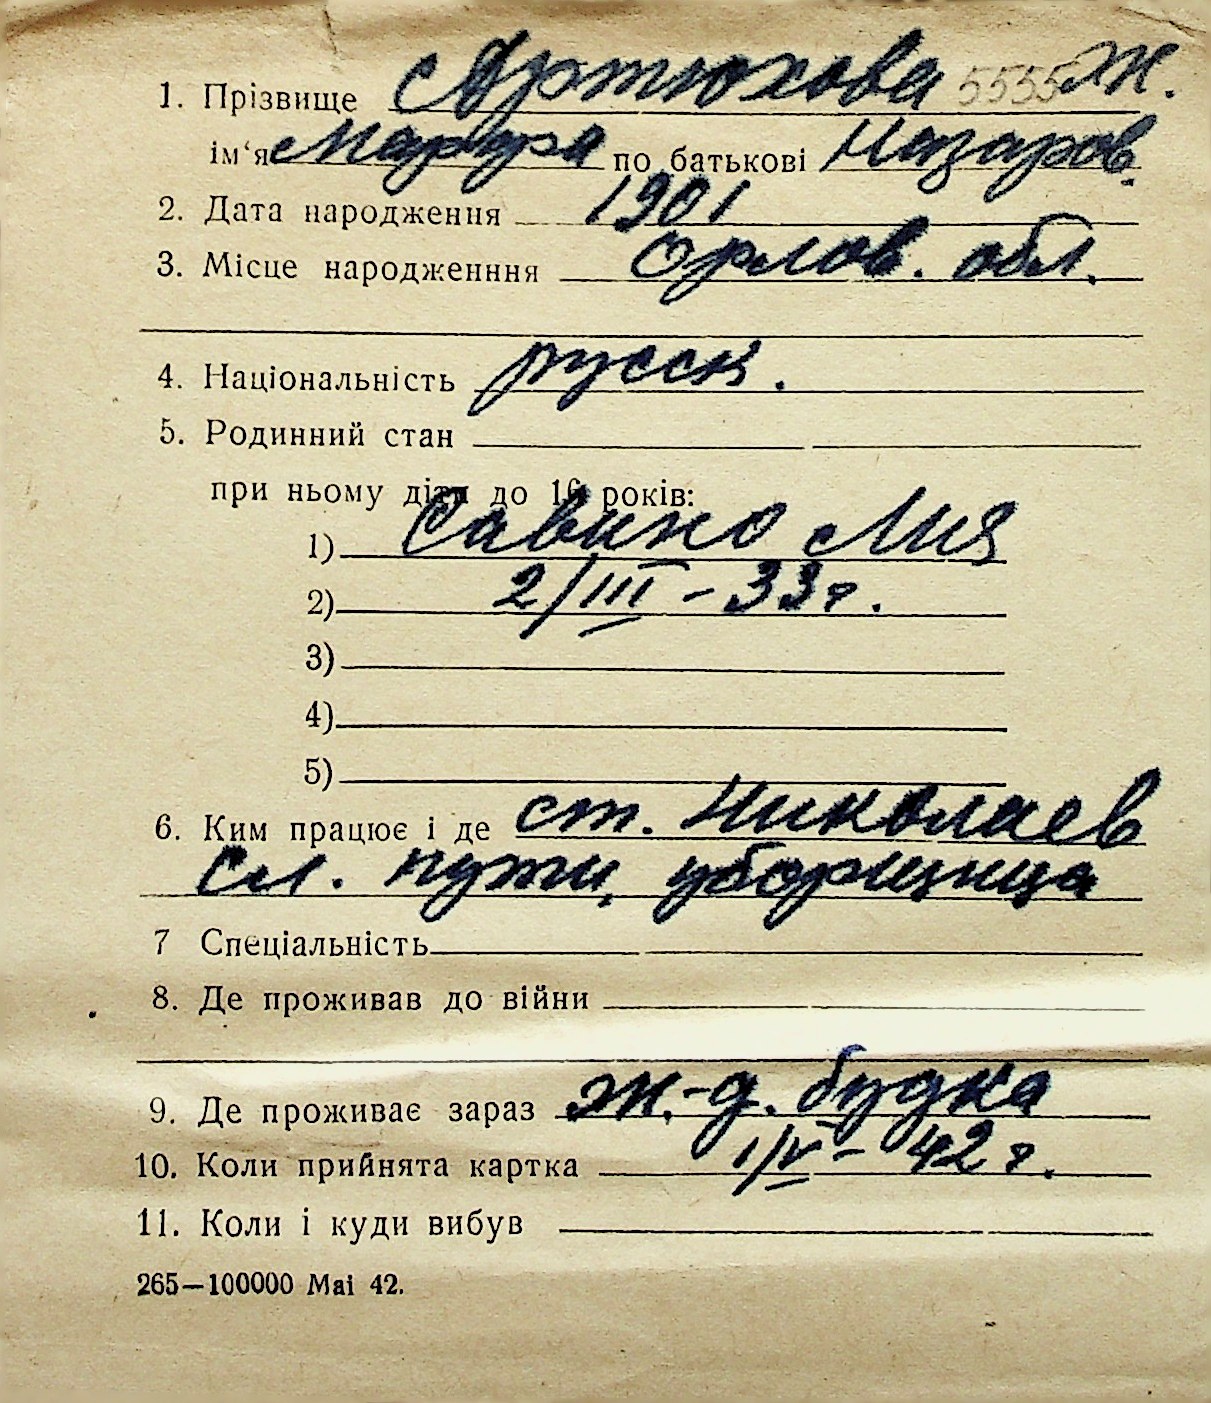 1. Прізвище Артюхова 5555 ж.
ім'я Марфа по батькові Назаров.
2. Дата народження 1901
3. Місце народженння Орлов. обл.
4. Національність русск.
5. Родинний стан
при ньому діти до 16 років:
1) Савино Лия
2) 2/III - 33 г.
3)
4)
5)
6. Ким працює і де ст. Николаев
сл. пути, уборщица
7 Спеціальність
8. Де проживав до війни
9. Де проживає зараз ж.-д. будка
10. Коли прийнята картка 1/V - 42 г.
11. Коли і куди вибув
265—100000 Mai 42.